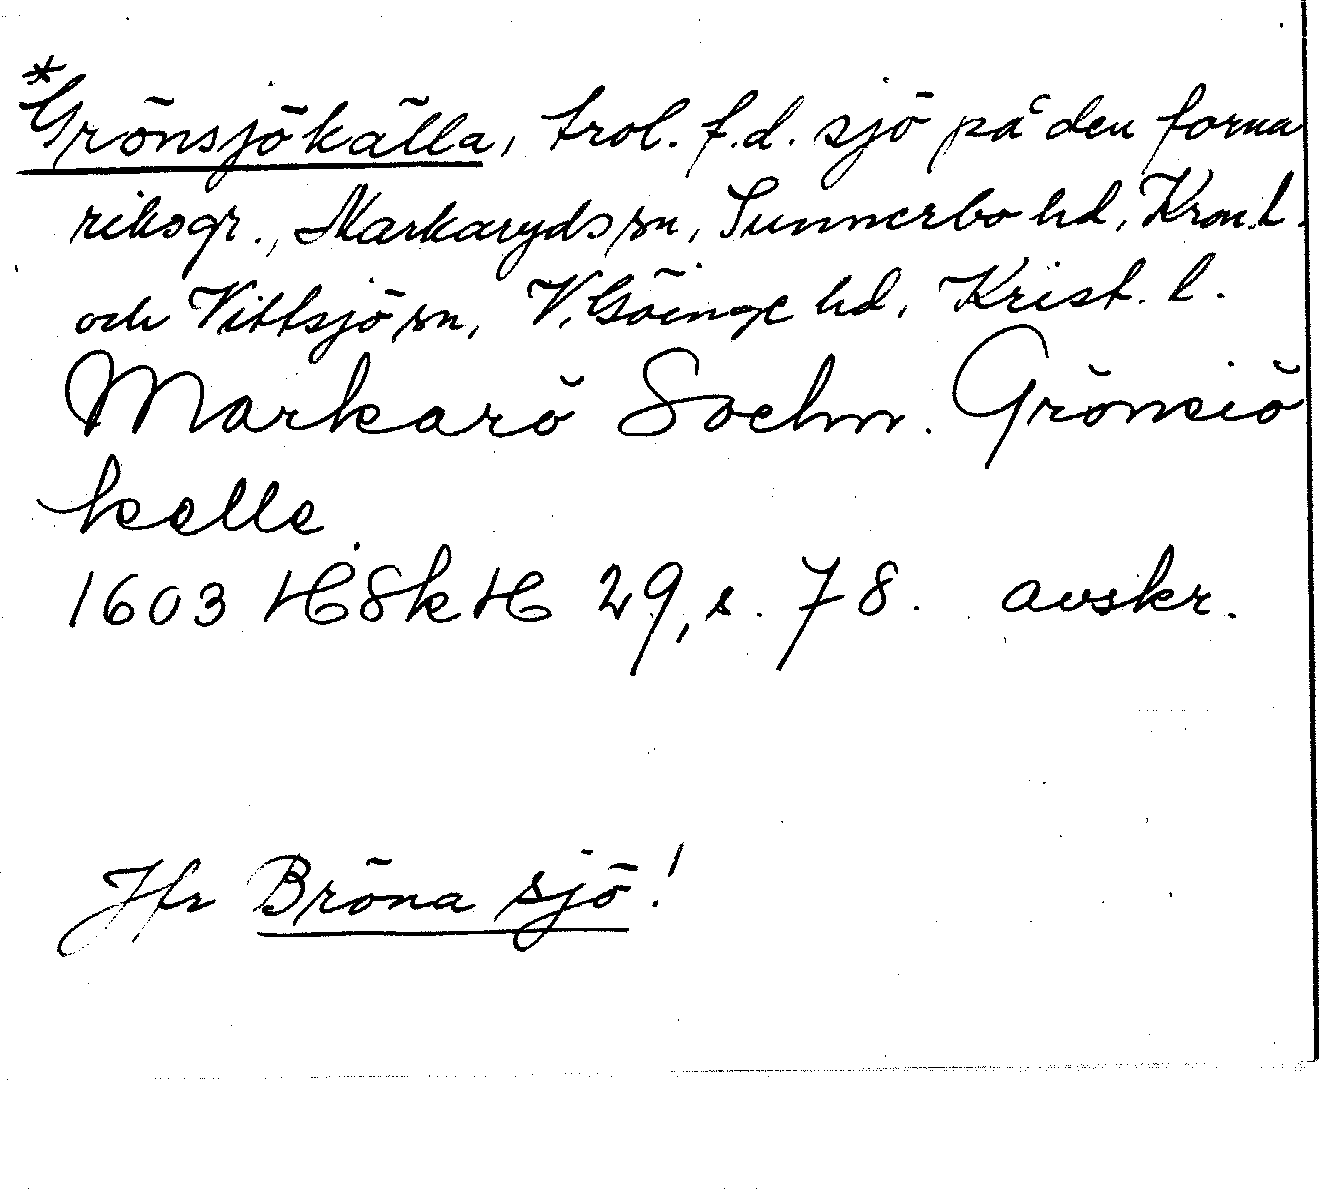 *Grönsjökälla, trol. f.d. sjö på den forna
riksgr., Markaryds sn, Sunnerbo hd, Kron.l.
och Vittsjö sn, V. Göinge hd, Krist. l.
Markarö Sochn. Grönsiö
kelle.
1603 HSkH 29, s. 78. avskr.
Jfr Bröna sjö!